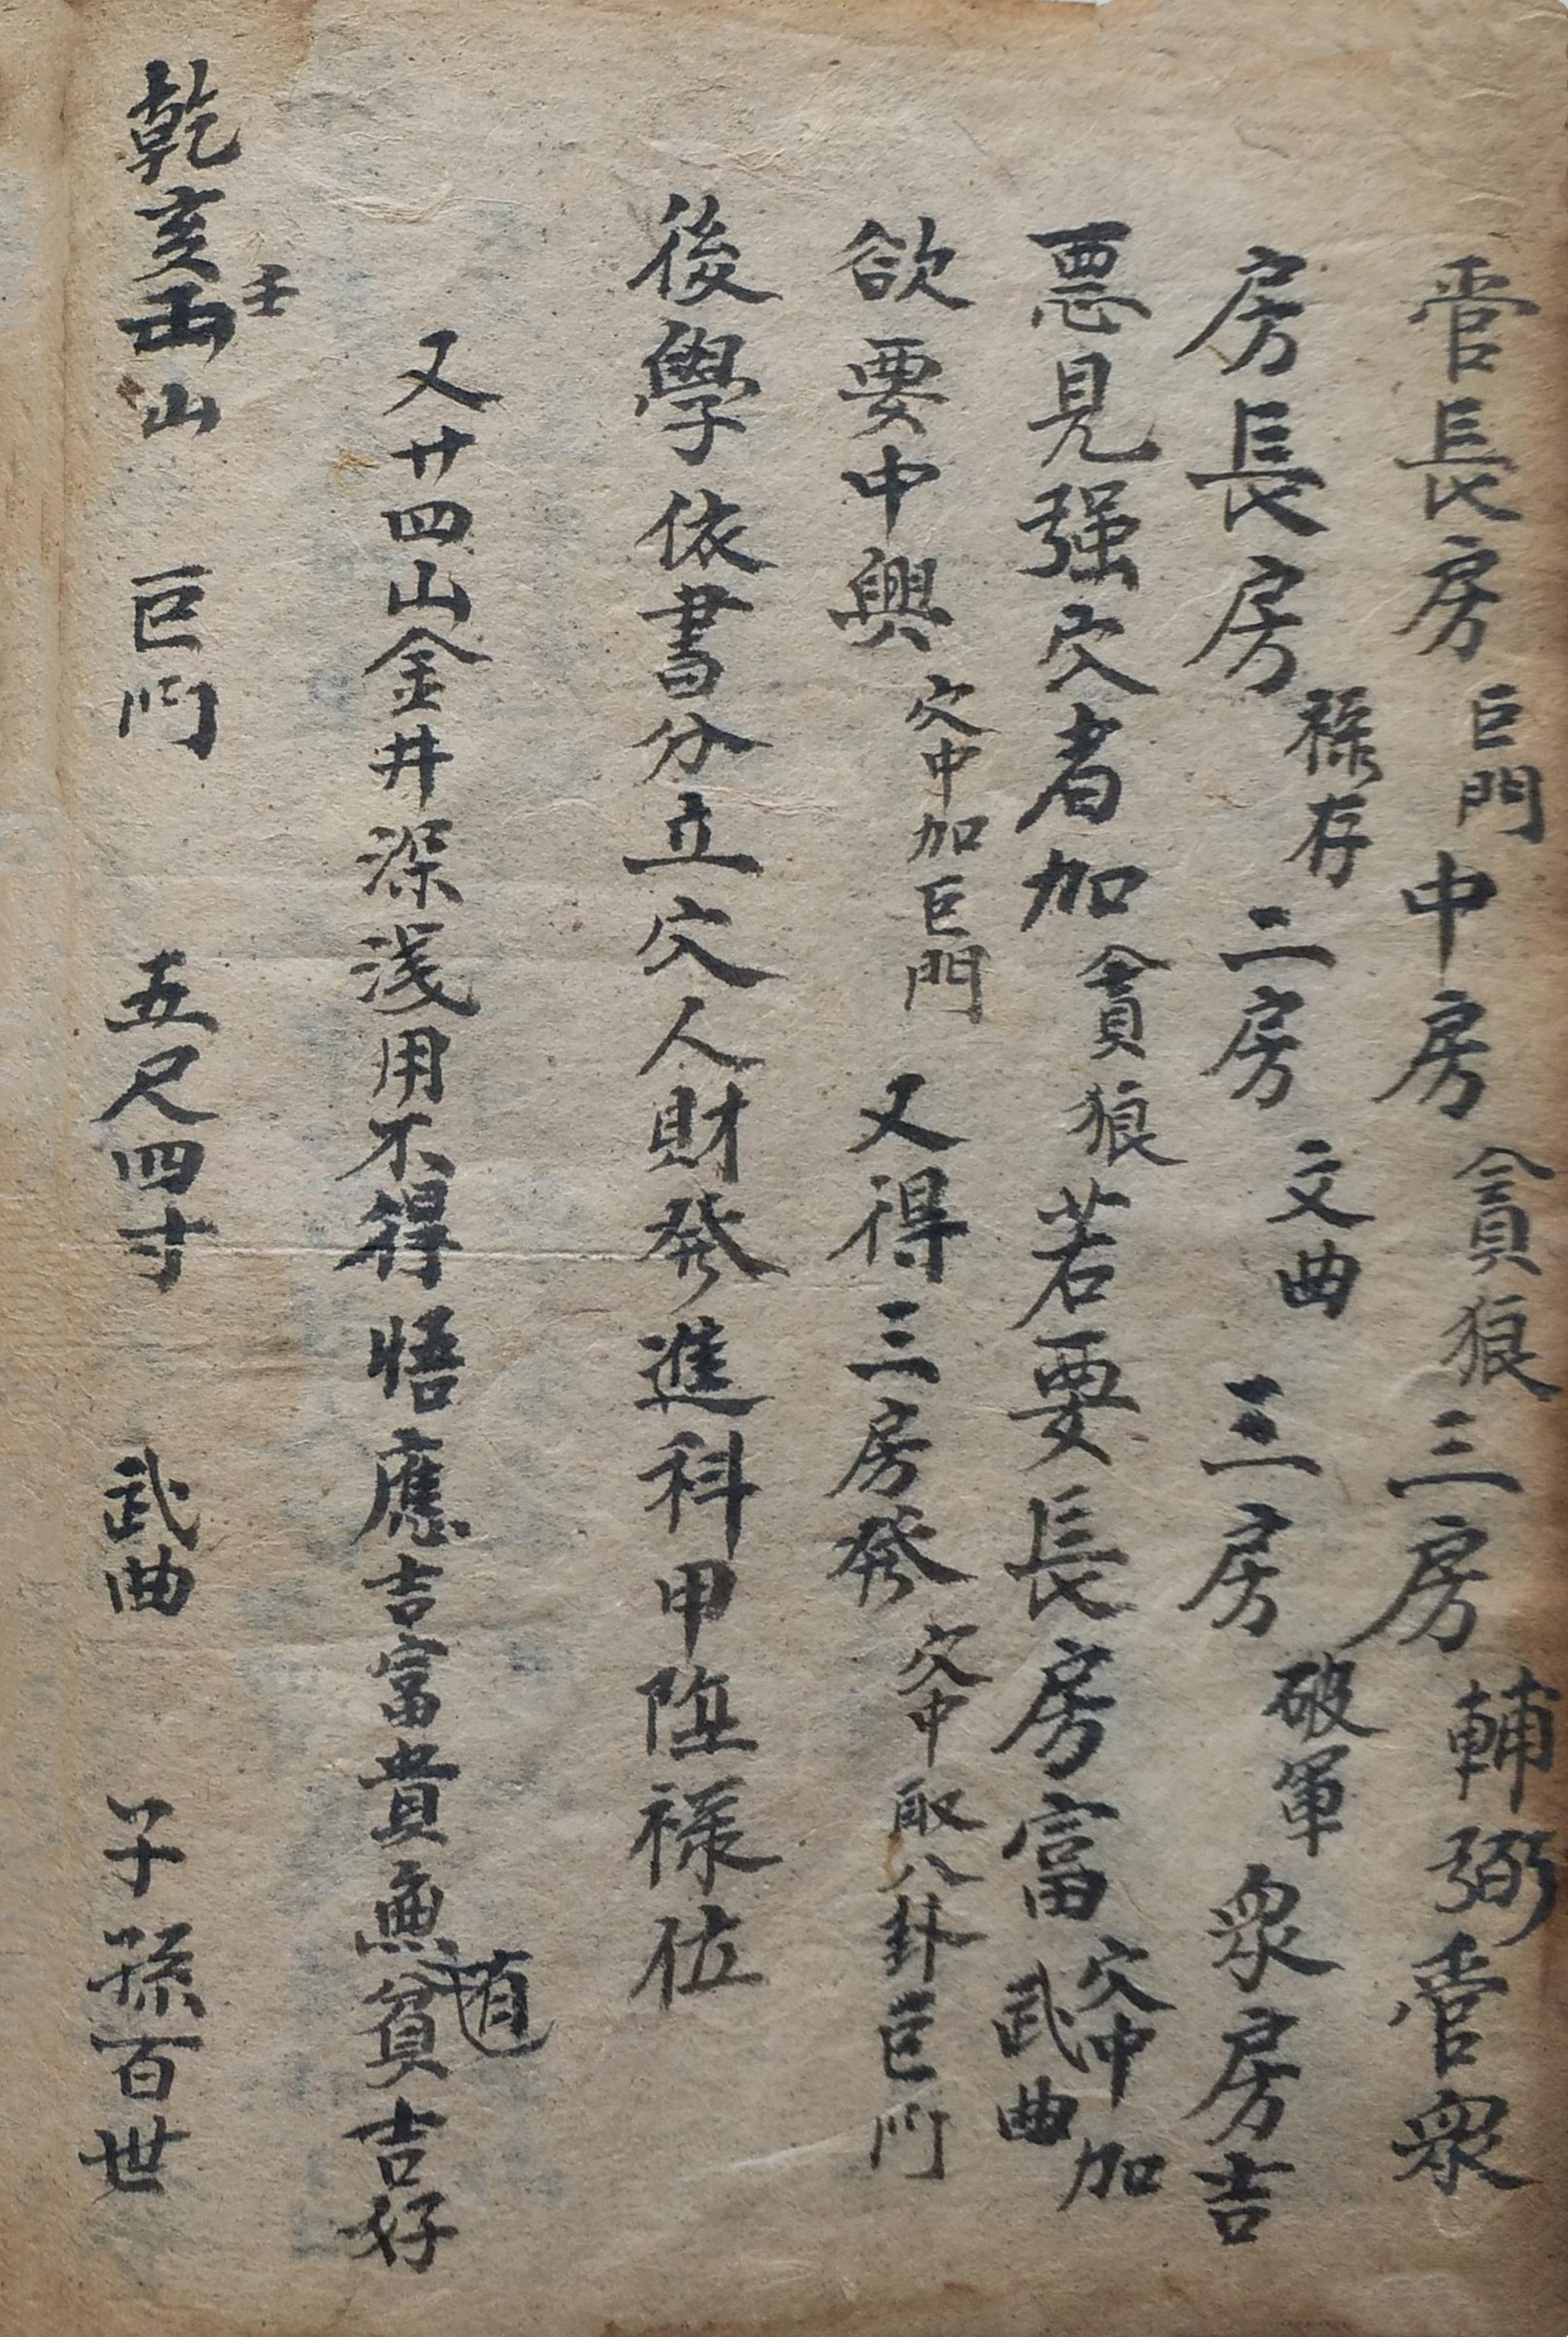 管長房巨門中房貪狼三房輔弼管衆
房長房祿存二房文曲三房破軍衆房吉
悪見强穴者加貪狼若要長房富穴中加武曲
欲要中興穴中加巨門又得三房発穴中取八卦巨門
後學依書分立穴人財発進科甲陞禄位
又廿四山金井深淺用不得悟應吉富貴無貧吉好
乾亥壬山 巨門 五尺四寸 武曲 子孫百世